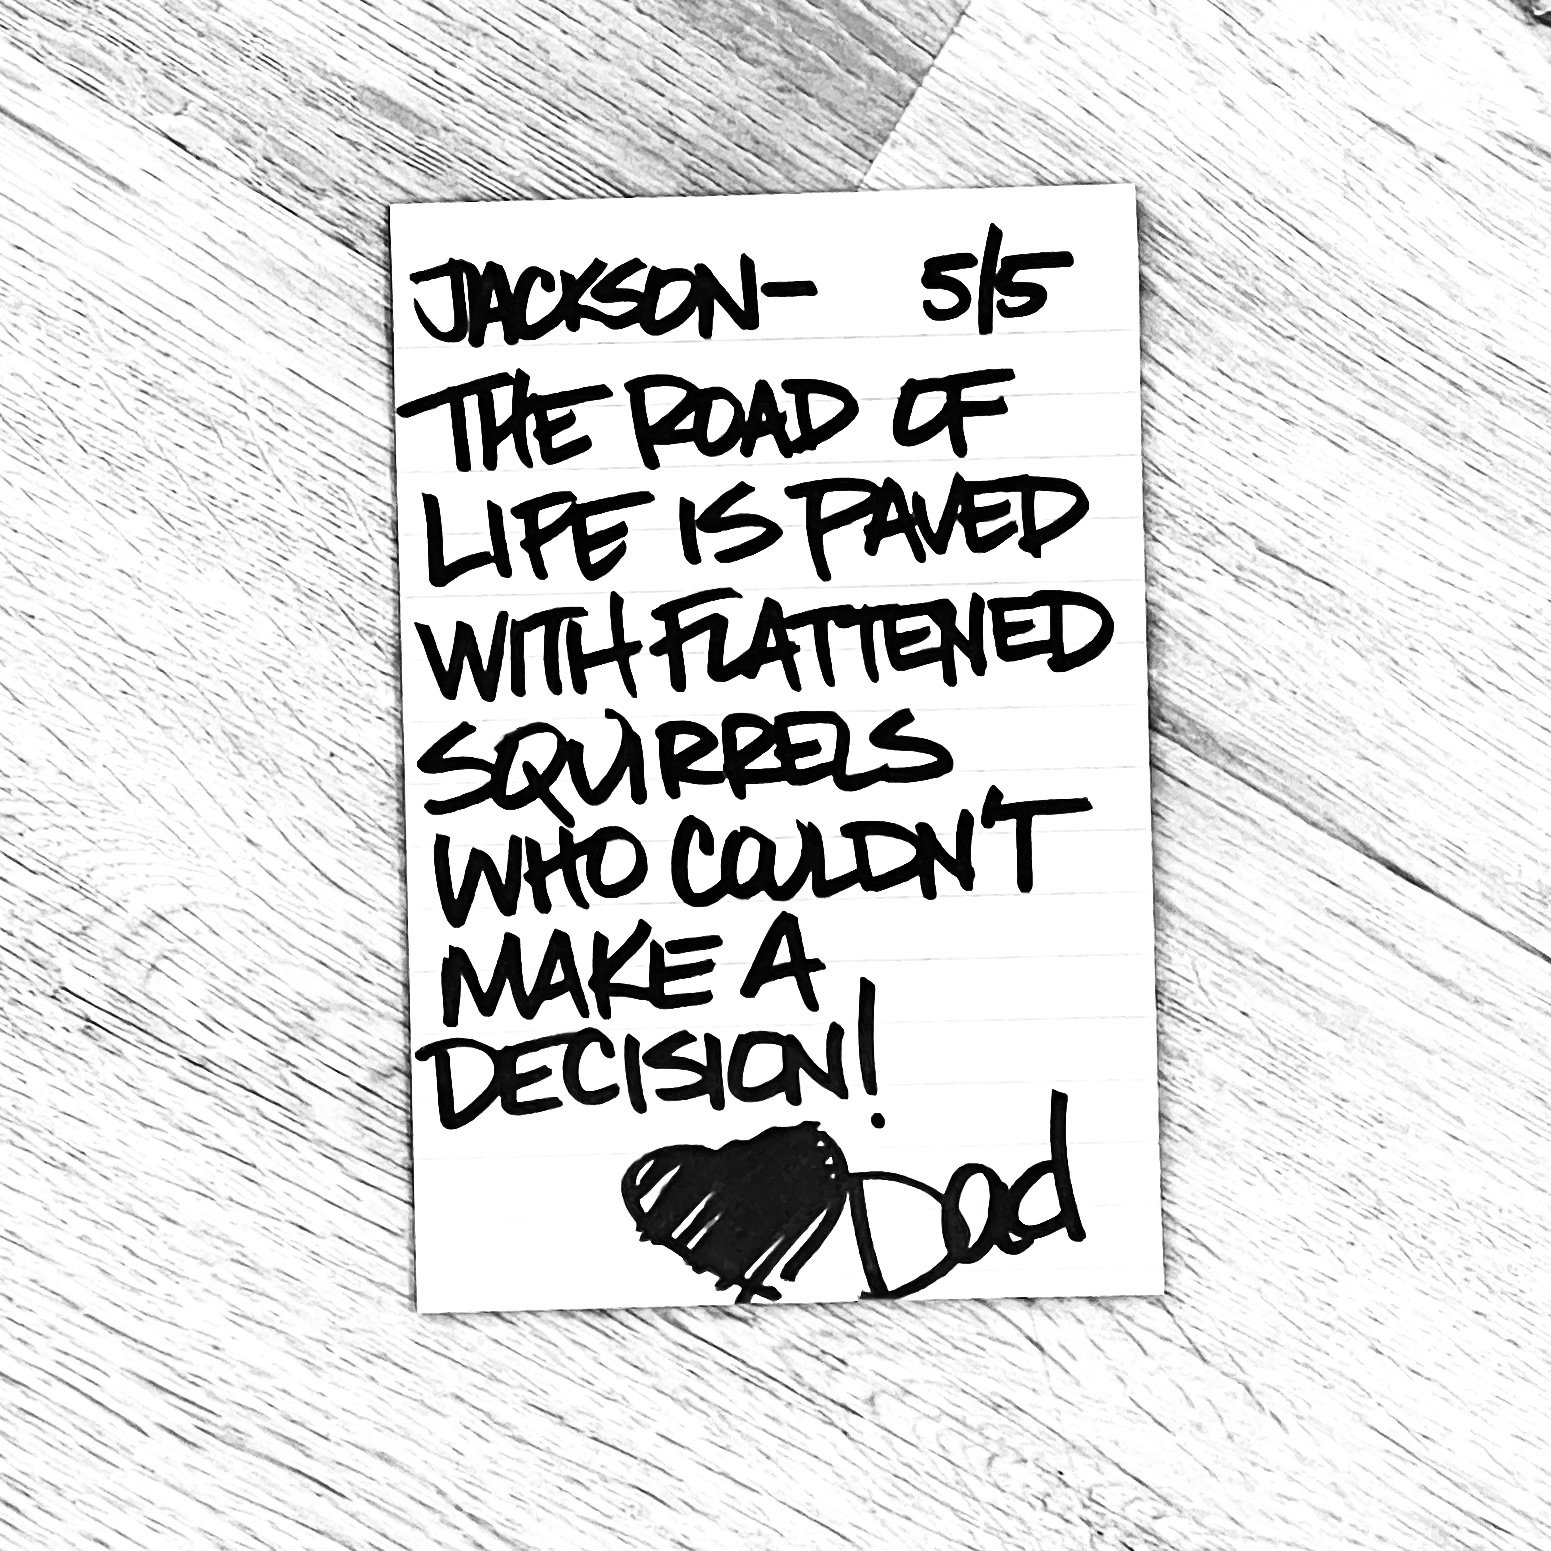 JACKSON— 5/5
THE ROAD OF
LIFE IS PAVED
WITH FLATTENED
SQUIRRELS
WHO COULDN'T
MAKE A
DECISION!
♥Dad